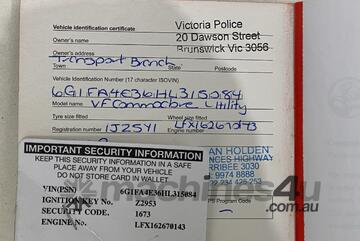 Vehicle identification certificate
Owner's name
Victoria Police
20 Dawson Street
Brunswick Vic 3056
Owner's address
Transport Branch
Town
State
Postcode
Vehicle Identification Number (17 character ISO/VIN)
6G1FA4E36HL315084
Model name
VF Commodore Utility
Tyre size fitted
Wheel size fitted
LFX162670143
Registration number
1JZ5YI
Engine number
IMPORTANT SECURITY INFORMATION
KEEP THIS SECURITY INFORMATION IN A SAFE
PLACE AWAY FROM YOUR VEHICLE
DO NOT STORE CARD IN WALLET
VIN(PSN) 6G1FA4E36HL315084
IGNITION KEY No. Z2953
SECURITY CODE. 1673
ENGINE No. LFX162670143
AN HOLDEN
NCES HIGHWAY
RRIBEE 3030
9974 8888
234 425 253
Program Code
machines4u
.com.au